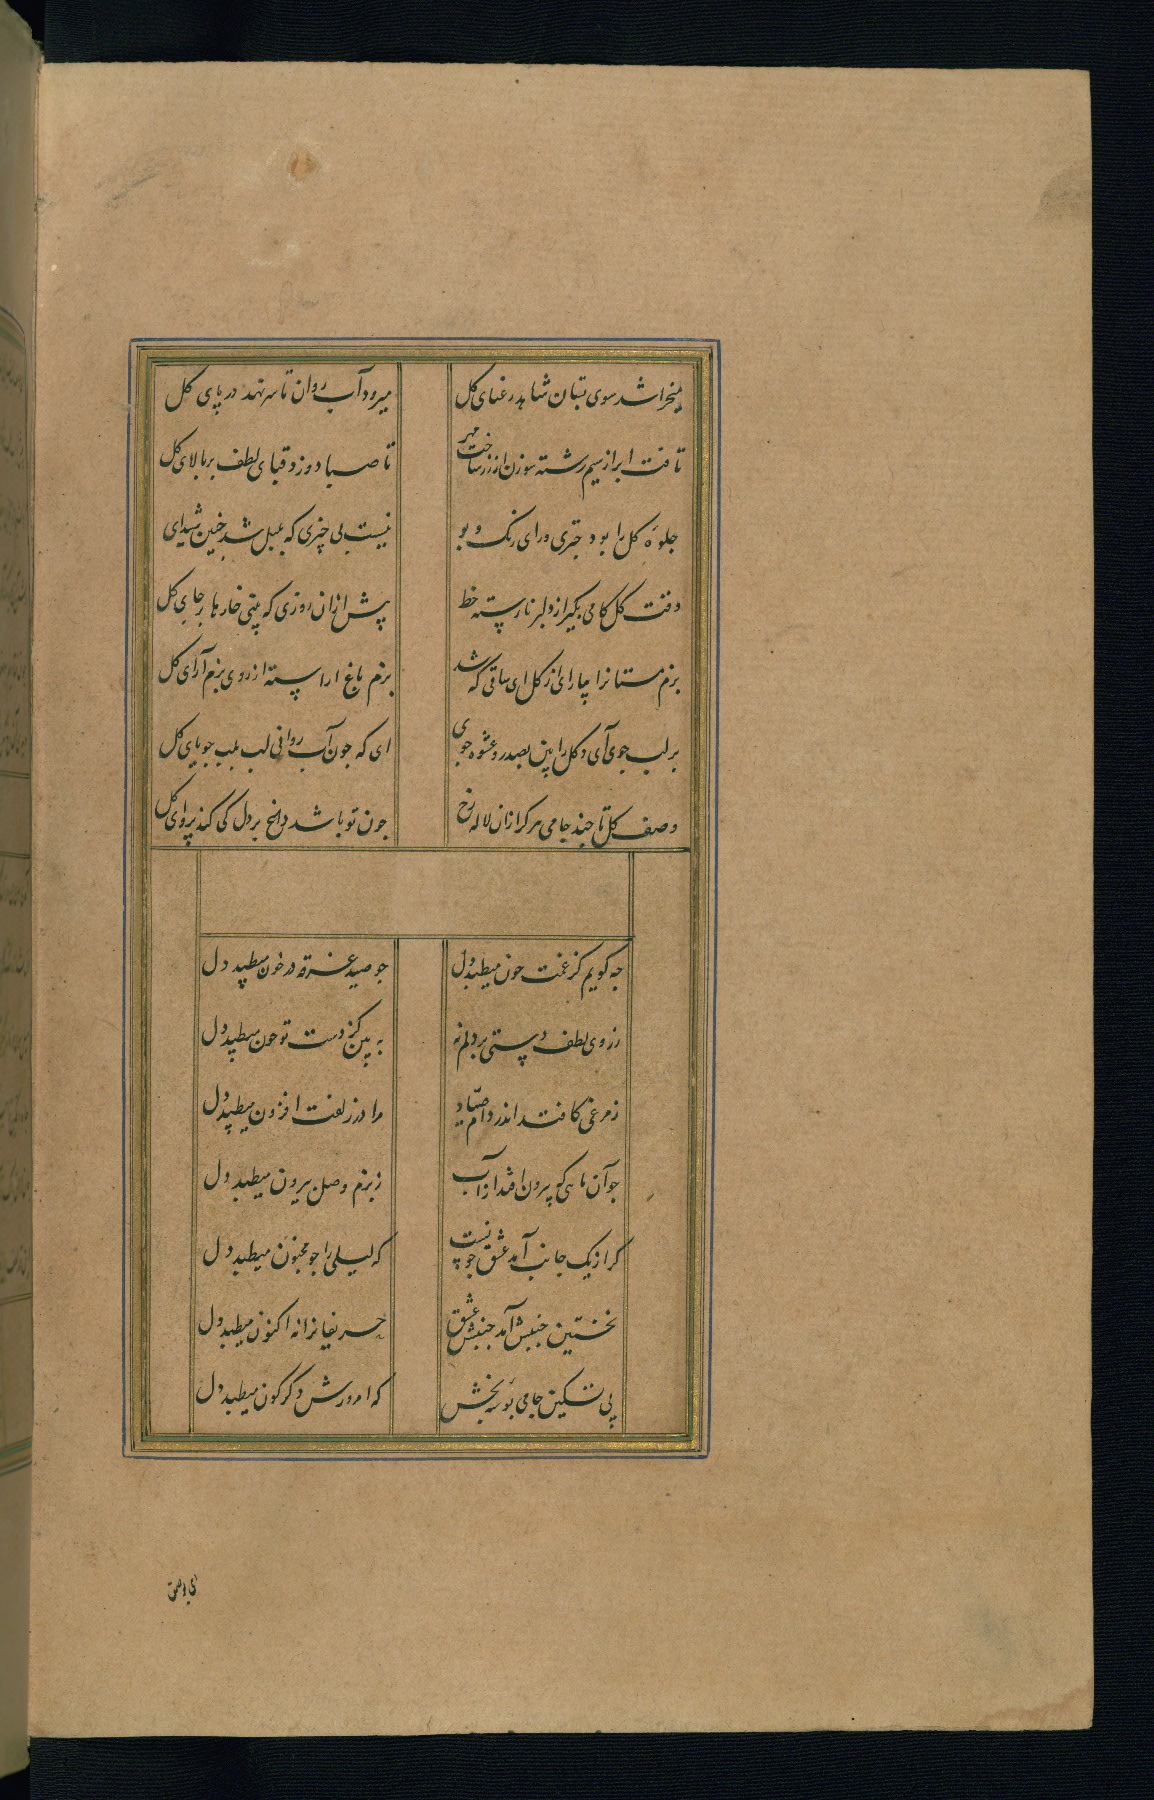 میخراشد سوی بستان شاهد رعنای کل
میرود آب روان تا سر نهد در پای کل
تافت ابر از سیم رشته سوزن از زر ساخت مهر
تا صبا دوزد قبای لطف بر بالای کل
جلوه کل را بود چیزی ورای رنک و بو
نیست بی چیزی که بلبل شد چنین شیدای
وقت کل کامی بکیر از دلبر نارسته خط
پیش ازان روزی که بینی خارها بر جای کل
بزم مستانرا بیارای از کل ای ساقی که شد
بزم باغ اراسته از روی بزم آرای کل
بر لب جوی آی و کل را بین بصد عشوه جوی
ای که جون آب روانی لب بلب جویای کل
وصف کل تا چند جامی هر کرا زان لاله رخ
جون تو باشد داغ بر دل کی کند پروای کل
چه کویم کز غمت چون میطپد دل
جو صید غرقه در خون میطپد دل
ز روی لطف دستی بر دلم نه
به بین کز دست تو جون میطپد دل
ز مرغی کافتد اندر دام صیاد
مرا در زلفت افزون میطپد دل
جو آن ماهی کو بیرون افتد از آب
ز بزم وصل بیرون میطپد دل
کر از یک جانب آمد عشق جو نیست
که لیلی را جو مجنون میطپد دل
نخستین جنبش آمد جنبش عشق
حریفانرا نه اکنون میطپد دل
پی تسکین جامی بوسه بخش
که امروزش دکرکون میطپد دل